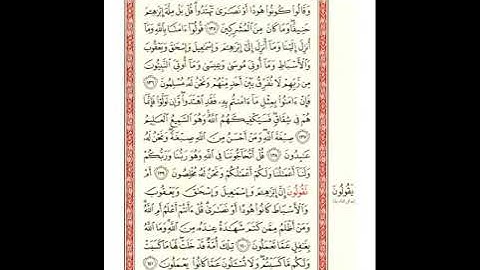 وَقَالُوا۟ كُونُوا۟ هُودًا أَوْ نَصَـٰرَىٰ تَهْتَدُوا۟ قُلْ بَلْ مِلَّةَ إِبْرَٰهِـۧمَ
حَنِيفًا وَمَا كَانَ مِنَ ٱلْمُشْرِكِينَ ١٣٥ قُولُوٓا۟ ءَامَنَّا بِٱللَّهِ وَمَآ
أُنزِلَ إِلَيْنَا وَمَآ أُنزِلَ إِلَىٰٓ إِبْرَٰهِـۧمَ وَإِسْمَـٰعِيلَ وَإِسْحَـٰقَ وَيَعْقُوبَ
وَٱلْأَسْبَاطِ وَمَآ أُوتِىَ مُوسَىٰ وَعِيسَىٰ وَمَآ أُوتِىَ ٱلنَّبِيُّونَ
مِن رَّبِّهِمْ لَا نُفَرِّقُ بَيْنَ أَحَدٍ مِّنْهُمْ وَنَحْنُ لَهُۥ مُسْلِمُونَ ١٣٦
فَإِنْ ءَامَنُوا۟ بِمِثْلِ مَآ ءَامَنتُم بِهِۦ فَقَدِ ٱهْتَدَوا۟ وَّإِن تَوَلَّوْا۟ فَإِنَّمَا
هُمْ فِى شِقَاقٍ فَسَيَكْفِيكَهُمُ ٱللَّهُ وَهُوَ ٱلسَّمِيعُ ٱلْعَلِيمُ
١٣٧ صِبْغَةَ ٱللَّهِ وَمَنْ أَحْسَنُ مِنَ ٱللَّهِ صِبْغَةً وَنَحْنُ لَهُۥ
عَـٰبِدُونَ ١٣٨ قُلْ أَتُحَآجُّونَنَا فِى ٱللَّهِ وَهُوَ رَبُّنَا وَرَبُّكُمْ
وَلَنَآ أَعْمَـٰلُنَا وَلَكُمْ أَعْمَـٰلُكُمْ وَنَحْنُ لَهُۥ مُخْلِصُونَ ١٣٩ أَمْ
تَقُولُونَ إِنَّ إِبْرَٰهِـۧمَ وَإِسْمَـٰعِيلَ وَإِسْحَـٰقَ وَيَعْقُوبَ
وَٱلْأَسْبَاطَ كَانُوا۟ هُودًا أَوْ نَصَـٰرَىٰ قُلْ ءَأَنتُمْ أَعْلَمُ أَمِ ٱللَّهُ
وَمَنْ أَظْلَمُ مِمَّن كَتَمَ شَهَـٰدَةً عِندَهُۥ مِنَ ٱللَّهِ وَمَا ٱللَّهُ
بِغَـٰفِلٍ عَمَّا تَعْمَلُونَ ١٤٠ تِلْكَ أُمَّةٌ قَدْ خَلَتْ لَهَا مَا كَسَبَتْ
وَلَكُم مَّا كَسَبْتُمْ وَلَا تُسْـَٔلُونَ عَمَّا كَانُوا۟ يَعْمَلُونَ ١٤١
يَقُولُونَ